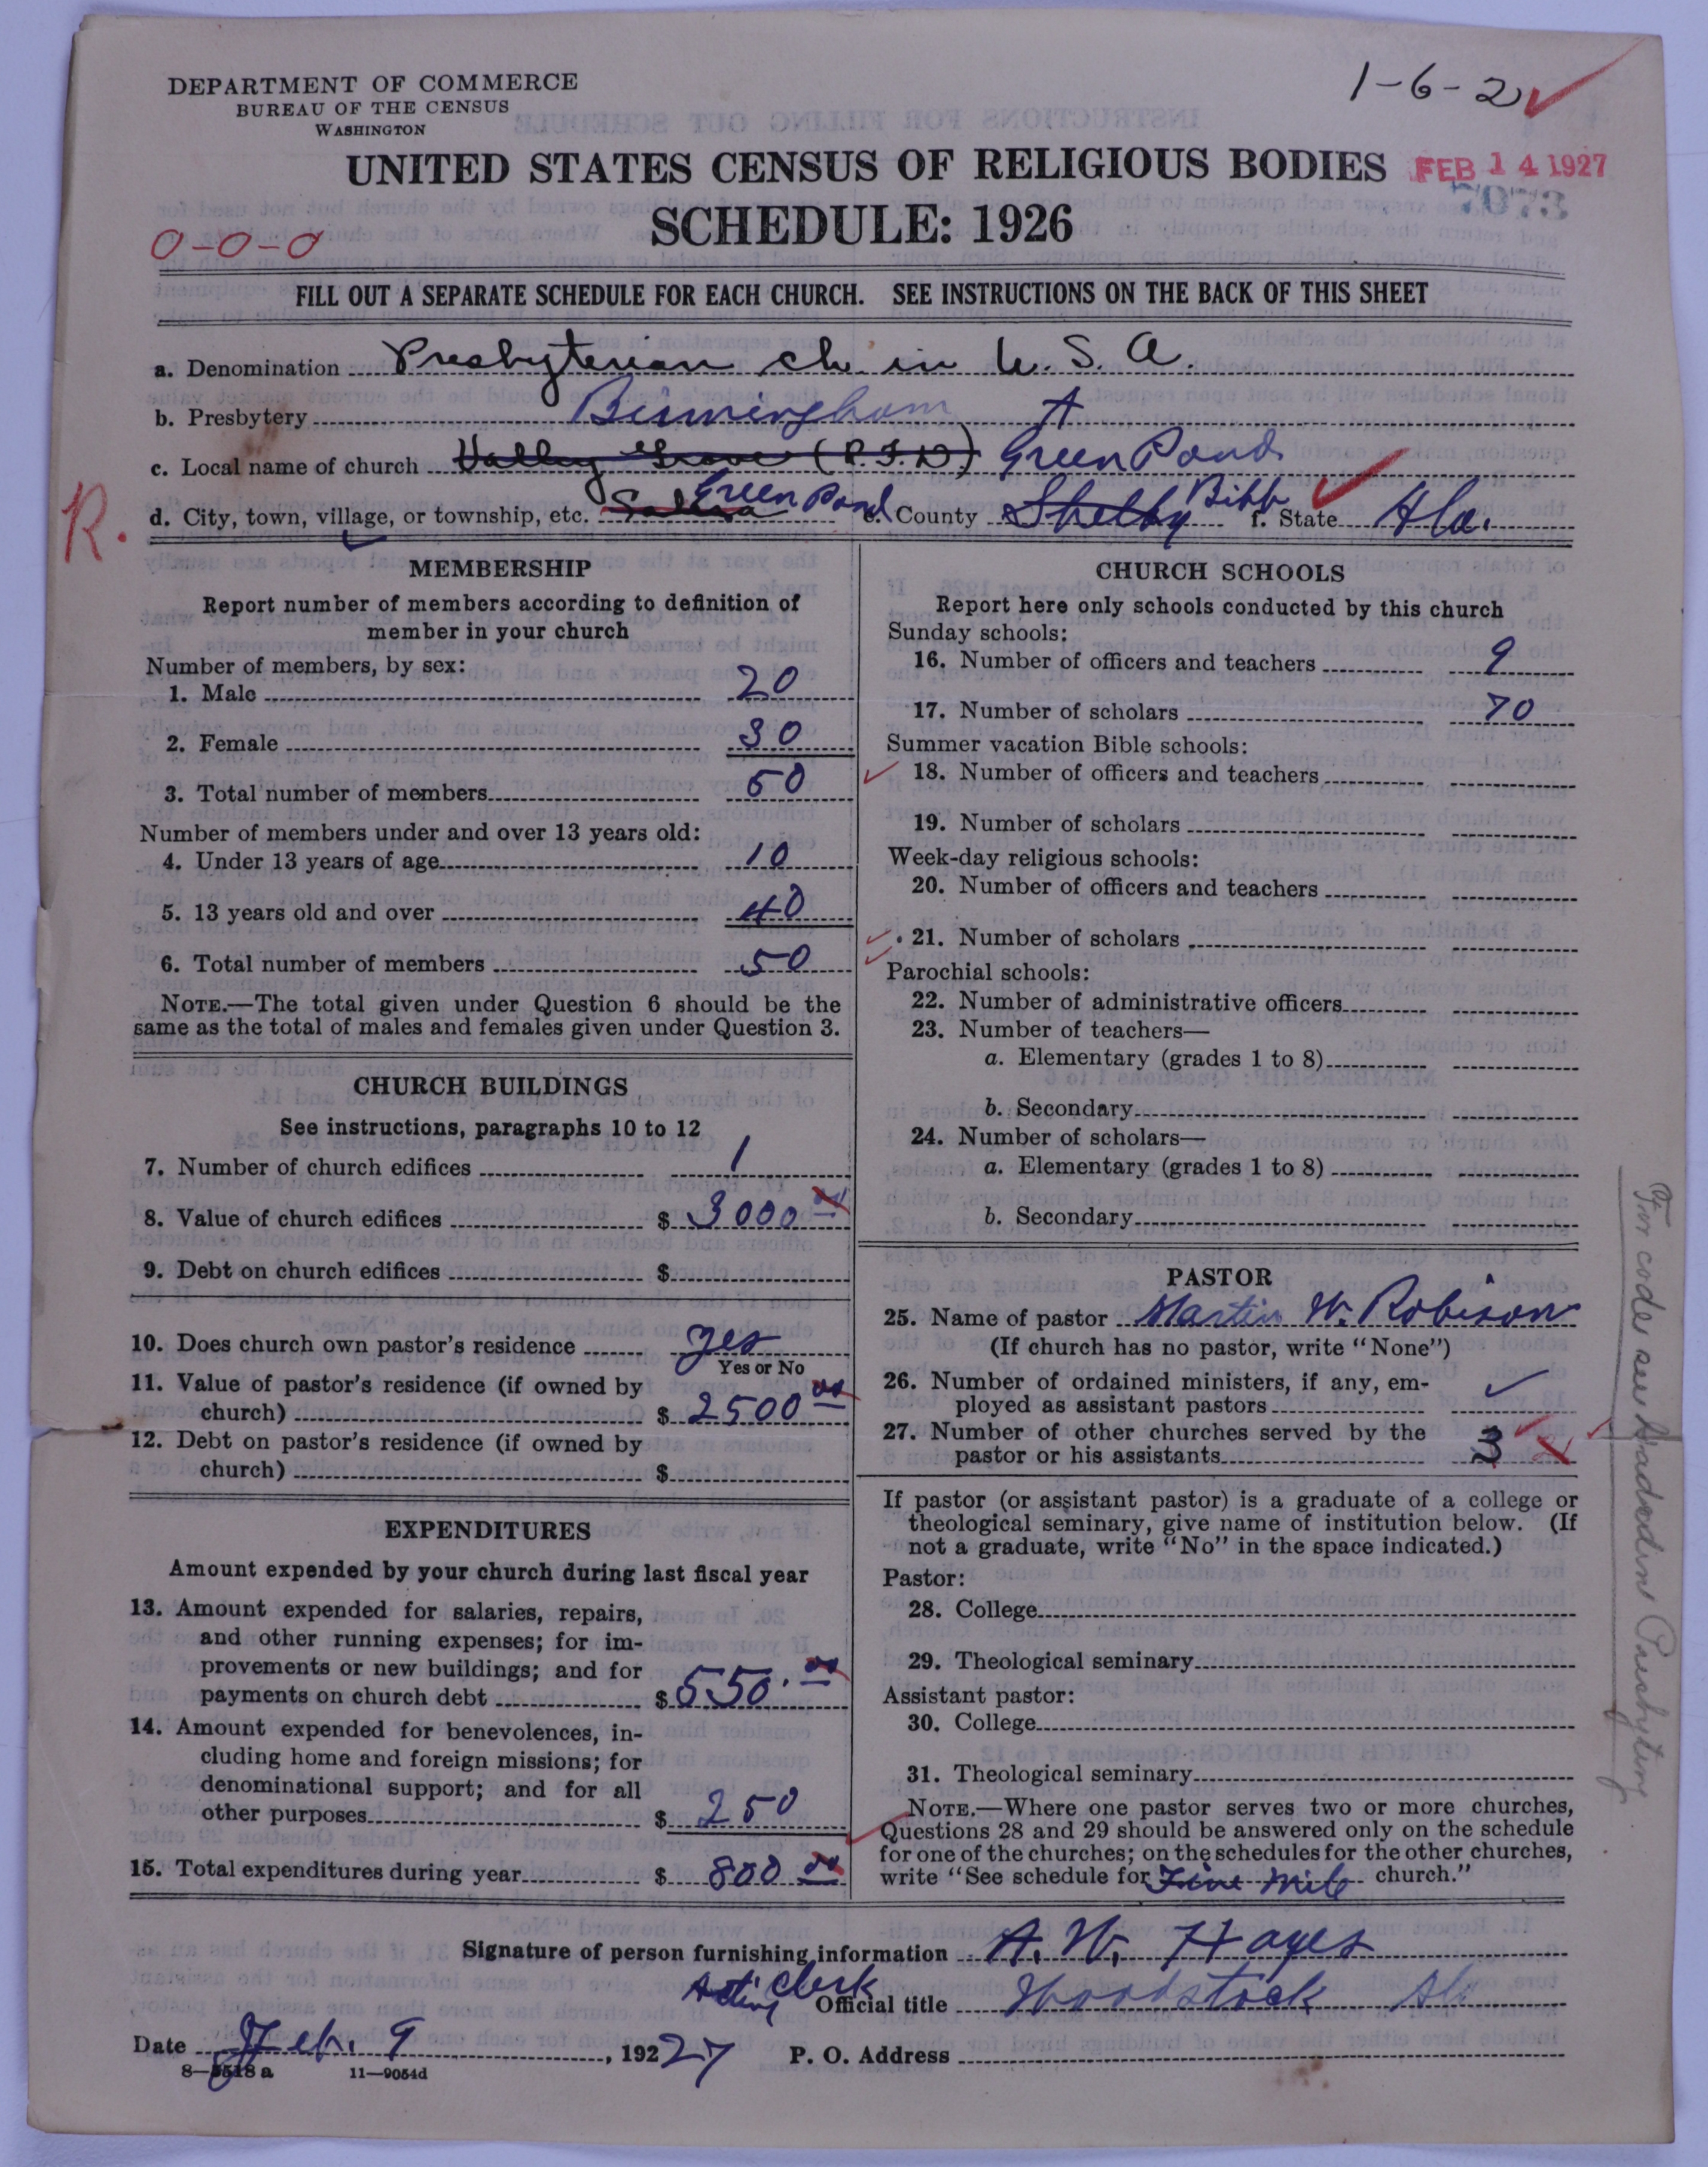 DEPARTMENT OF COMMERCE
BUREAU OF THE CENSUS
WASHINGTON
1-6-2
UNITED STATES CENSUS OF RELIGIOUS BODIES
FEB 14 1927
SCHEDULE: 1926
0-0-0
FILL OUT A SEPARATE SCHEDULE FOR EACH CHURCH. SEE INSTRUCTIONS ON THE BACK OF THIS SHEET
a. Denomination Presbyterian ch. in U. S. A.
b. Presbytery Birmingham
c. Local name of church Valley Grove (R.F.D.) Green Pond
d. City, town, village, or township, etc. Green Pond e. County Shelby Bibb f. State Ala.
R.
MEMBERSHIP
Report number of members according to definition of
member in your church
Number of members, by sex:
1. Male 20
2. Female 30
3. Total number of members 50
Number of members under and over 13 years old:
4. Under 13 years of age 10
5. 13 years old and over 40
6. Total number of members 50
NOTE.—The total given under Question 6 should be the
same as the total of males and females given under Question 3.
CHURCH BUILDINGS
See instructions, paragraphs 10 to 12
7. Number of church edifices 1
8. Value of church edifices $ 3000 00
9. Debt on church edifices $
10. Does church own pastor's residence yes
Yes or No
11. Value of pastor's residence (if owned by
church) $ 2500 00
12. Debt on pastor's residence (if owned by
church) $
EXPENDITURES
Amount expended by your church during last fiscal year
13. Amount expended for salaries, repairs,
and other running expenses; for im-
provements or new buildings; and for
payments on church debt $ 550.00
14. Amount expended for benevolences, in-
cluding home and foreign missions; for
denominational support; and for all
other purposes $ 250
15. Total expenditures during year $ 800 00
CHURCH SCHOOLS
Report here only schools conducted by this church
Sunday schools:
16. Number of officers and teachers 9
17. Number of scholars 70
Summer vacation Bible schools:
18. Number of officers and teachers
19. Number of scholars
Week-day religious schools:
20. Number of officers and teachers
21. Number of scholars
Parochial schools:
22. Number of administrative officers
23. Number of teachers—
a. Elementary (grades 1 to 8)
b. Secondary
24. Number of scholars—
a. Elementary (grades 1 to 8)
b. Secondary
PASTOR
25. Name of pastor Martin W. Robison
(If church has no pastor, write "None")
26. Number of ordained ministers, if any, em-
ployed as assistant pastors
27. Number of other churches served by the
pastor or his assistants 3
If pastor (or assistant pastor) is a graduate of a college or
theological seminary, give name of institution below. (If
not a graduate, write "No" in the space indicated.)
Pastor:
28. College
29. Theological seminary
Assistant pastor:
30. College
31. Theological seminary
NOTE.—Where one pastor serves two or more churches,
Questions 28 and 29 should be answered only on the schedule
for one of the churches; on the schedules for the other churches,
write "See schedule for Five Mile church."
For codes see Gadsden Presbytery
Signature of person furnishing information A. W. Hayes
Acting Clerk
Official title Woodstock Ala
Date Feb. 9, 1927 P. O. Address
8—5518a 11—9054d